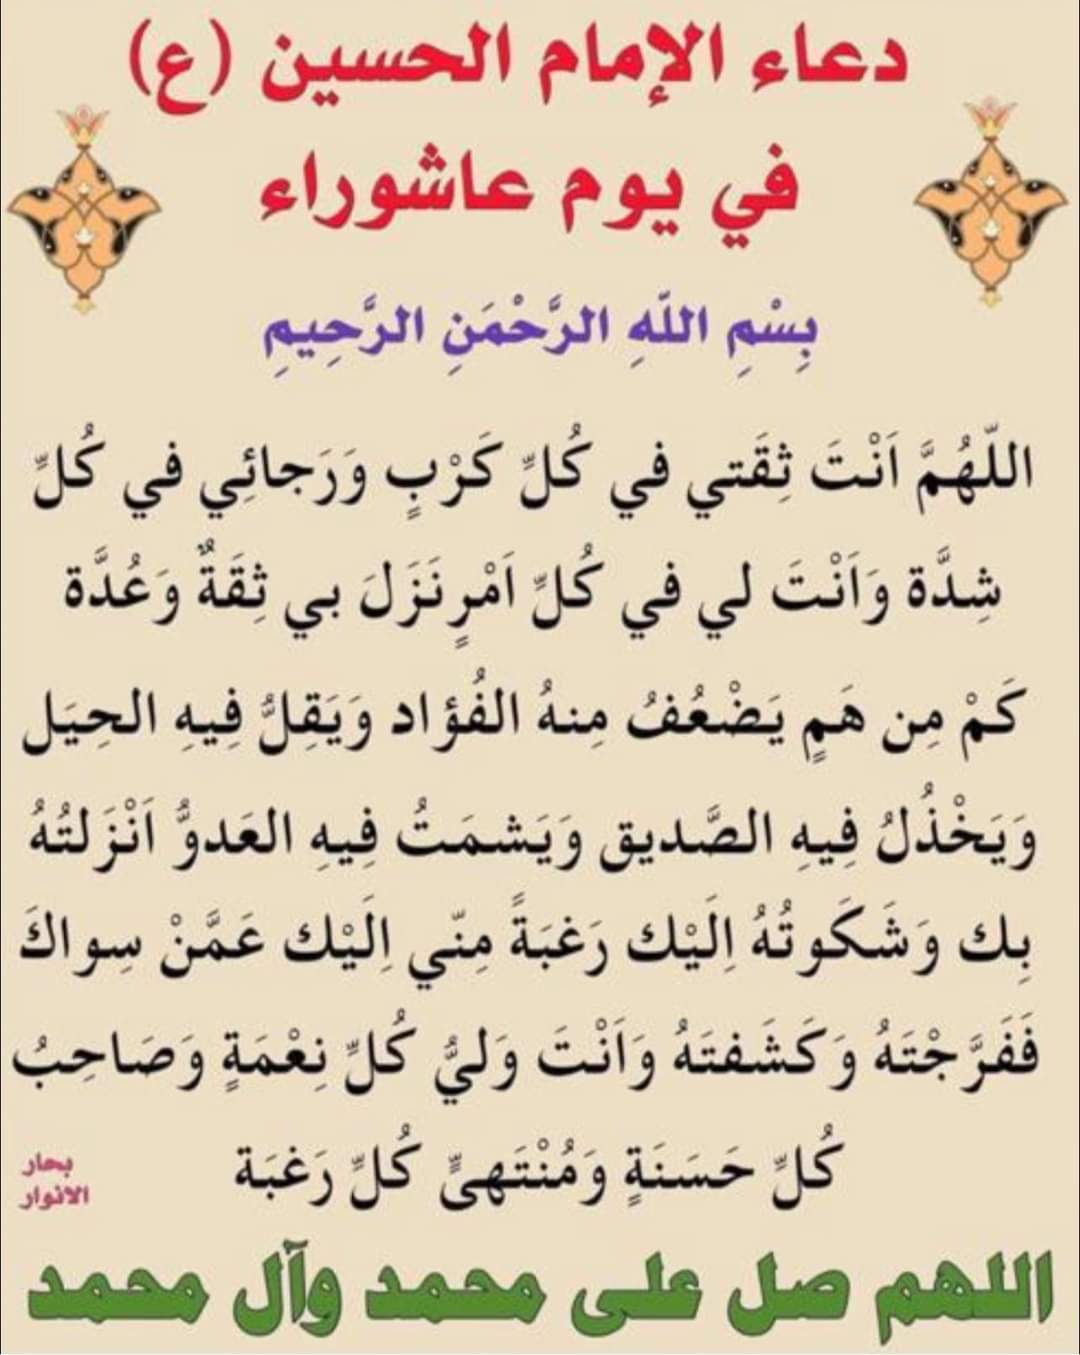 دعاء الإمام الحسين (ع)
في يوم عاشوراء
بِسْمِ اللّهِ الرَّحْمَنِ الرَّحِيمِ
اللّهُمَّ اَنْتَ ثِقَتي في كُلِّ كَرْبٍ وَرَجائِي في كُلِّ
شِدَّة وَاَنْتَ لي في كُلِّ اَمْرٍ نَزَلَ بي ثِقَةٌ وَعُدَّة
كَمْ مِن هَمٍ يَضْعُفُ مِنهُ الفُؤاد وَيَقِلُّ فِيهِ الحِيَل
وَيَخْذُلُ فِيهِ الصَّديق وَيَشمَتُ فِيهِ العَدوُّ اَنْزَلتُهُ
بِك وَشَكَوتُهُ اِلَيْك رَغبَةً مِنّي اِلَيْك عَمَّنْ سِواكَ
فَفَرَّجْتَهُ وَكَشَفتَهُ وَاَنْتَ وَليُّ كُلِّ نِعْمَةٍ وَصَاحِبُ
كُلِّ حَسَنَةٍ وَمُنْتَهىًّ كُلِّ رَغبَة
بحار
الانوار
اللهم صل على محمد وآل محمد